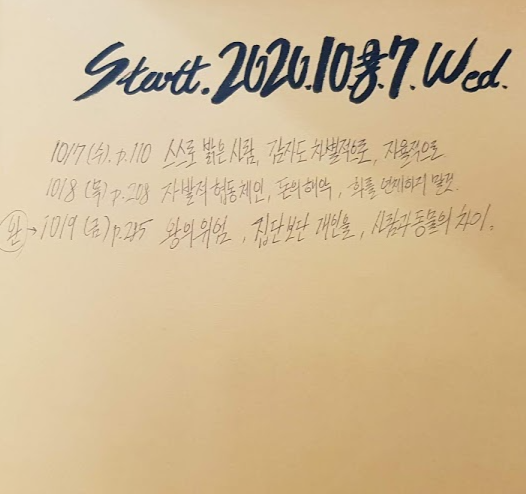 Start. 2020.10.7. Wed.
10/7 (수). p.110 스스로 밝은 사람, 감자도 차별적으로, 자율적으로
10/8 (목) p.208 자발적 협동체인, 돈의 해악, 화를 연제하지 말것.
완 → 10/9 (금) p.285 왕의 위엄, 집단보단 개인을, 사람과 동물의 차이.